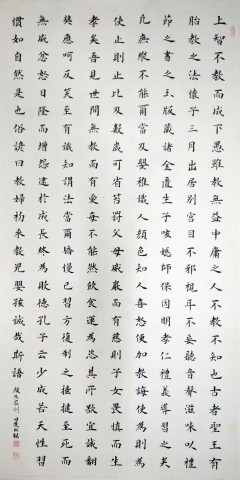 上智不教而成下愚雖教無益中庸之人不教不知也古者聖王有
胎教之法懷子三月出居別宮目不邪視耳不妄聽音聲滋味以禮
節之書之玉版藏諸金匱生子咳㖷師保固明孝仁禮義導習之矣
凡庶縱不能爾當及嬰稚識人顏色知人喜怒便加教誨使為則為
使止則止比及數歲可省笞罰父母威嚴而有慈則子女畏慎而生
孝矣吾見世間無教而有愛每不能然飲食運為恣其所欲宜誡翻
獎應呵反笑至有識知謂法當爾驕慢已習方復制之捶撻至死而
無威忿怒日隆而增怨逮於成長終為敗德孔子云少成若天性習
慣如自然是也俗諺曰教婦初來教兒嬰孩誠哉斯語
顏氏家訓